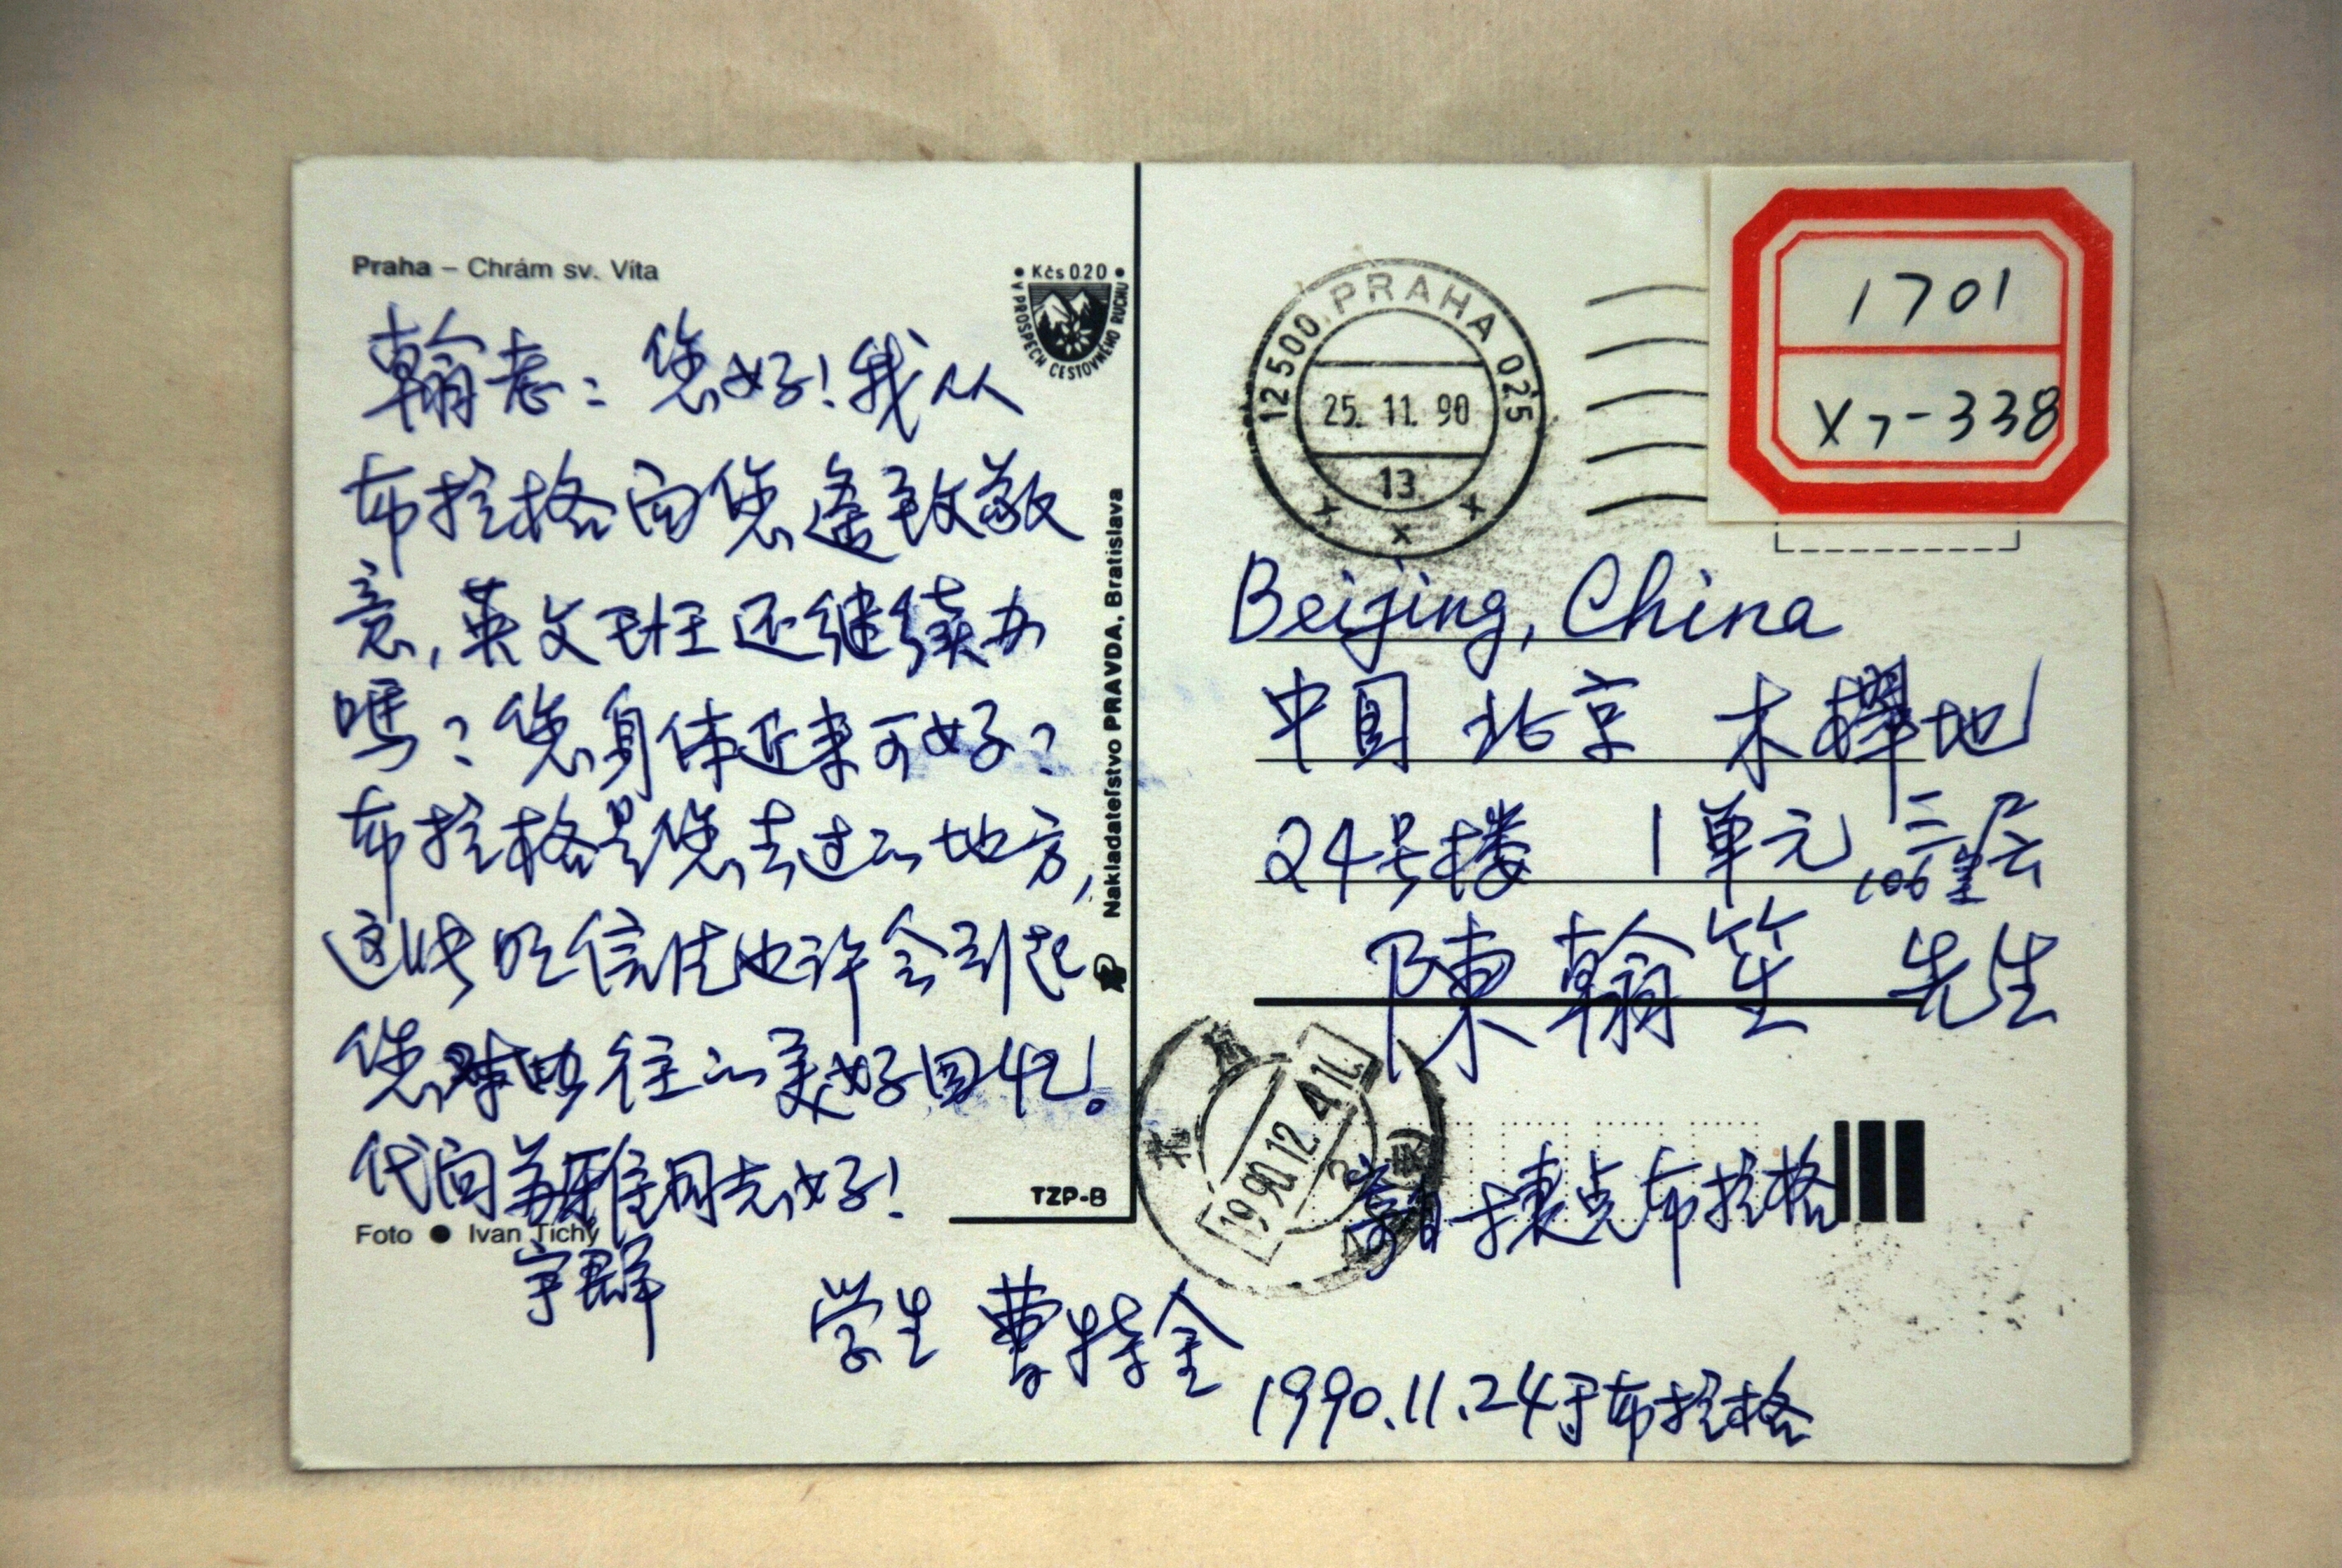 Praha – Chrám sv. Víta
• Kčs 0.20 •
V PROSPECH CESTOVNÉHO RUCHU
翰老：您好！我从
布拉格向您遥致敬
意，英文班还继续办
嗎？您身体近来可好？
布拉格是您去过的地方，
这张明信片也许会引起
您对以往的美好回忆。
代向 同志好！
Foto ● Ivan Tichý
学生 曹特金
TZP-B
Nakladateľstvo PRAVDA, Bratislava
12500 PRAHA 025
25. 11. 90
13
1701
X7-338
Beijing, China
中国 北京 木樨地
24号楼 1单元 三层
106室
陳翰笙 先生
1990.12.4
寄自捷克布拉格
1990.11.24于布拉格